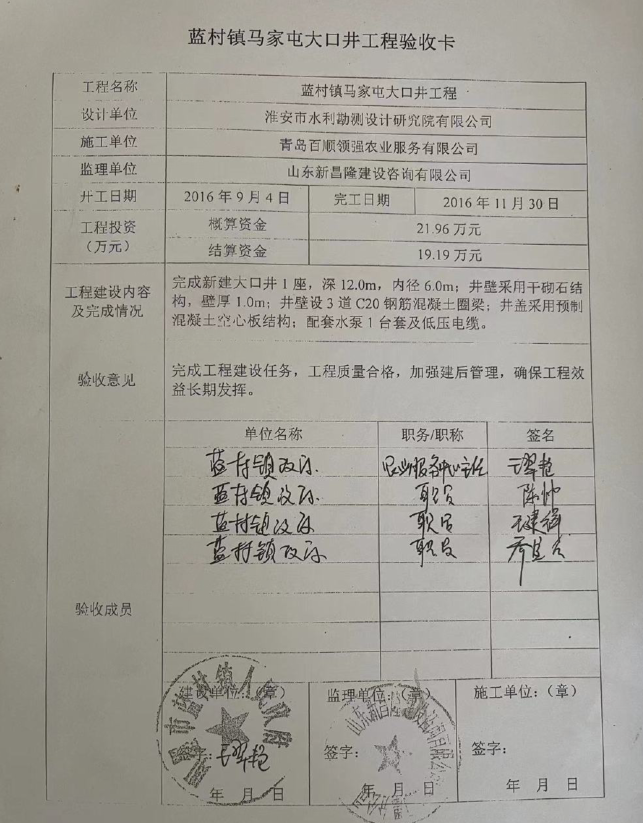 蓝村镇马家屯大口井工程验收卡
工程名称 蓝村镇马家屯大口井工程
设计单位 淮安市水利勘测设计研究院有限公司
施工单位 青岛百顺领强农业服务有限公司
监理单位 山东新昌隆建设咨询有限公司
开工日期 2016年9月4日 完工日期 2016年11月30日
工程投资（万元） 概算资金 21.96万元
结算资金 19.19万元
工程建设内容及完成情况
完成新建大口井1座，深12.0m，内径6.0m；井壁采用干砌石结
构，壁厚1.0m；井壁设3道C20钢筋混凝土圈梁；井盖采用预制
混凝土空心板结构；配套水泵1台套及低压电缆。
验收意见
完成工程建设任务，工程质量合格，加强建后管理，确保工程效
益长期发挥。
验收成员
单位名称 职务/职称 签名
蓝村镇政府 农业服务中心主任
蓝村镇政府 职员 陈帅
蓝村镇政府 职员
蓝村镇政府 职员
建设单位：（章） 监理单位：（章） 施工单位：（章）
签字： 签字： 签字：
年 月 日 年 月 日 年 月 日